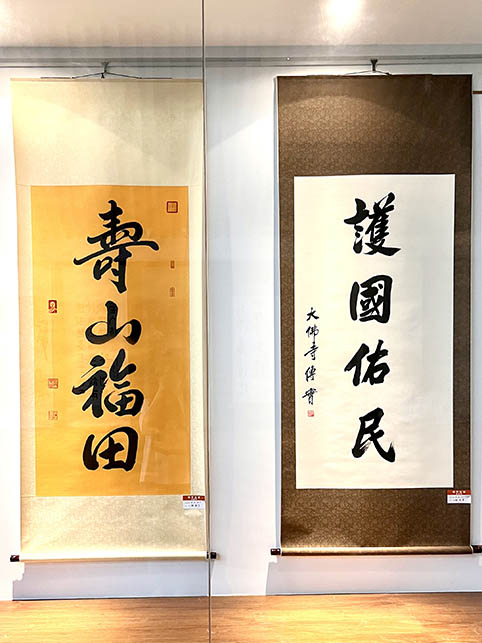 壽山福田
護國佑民
大佛寺傳實